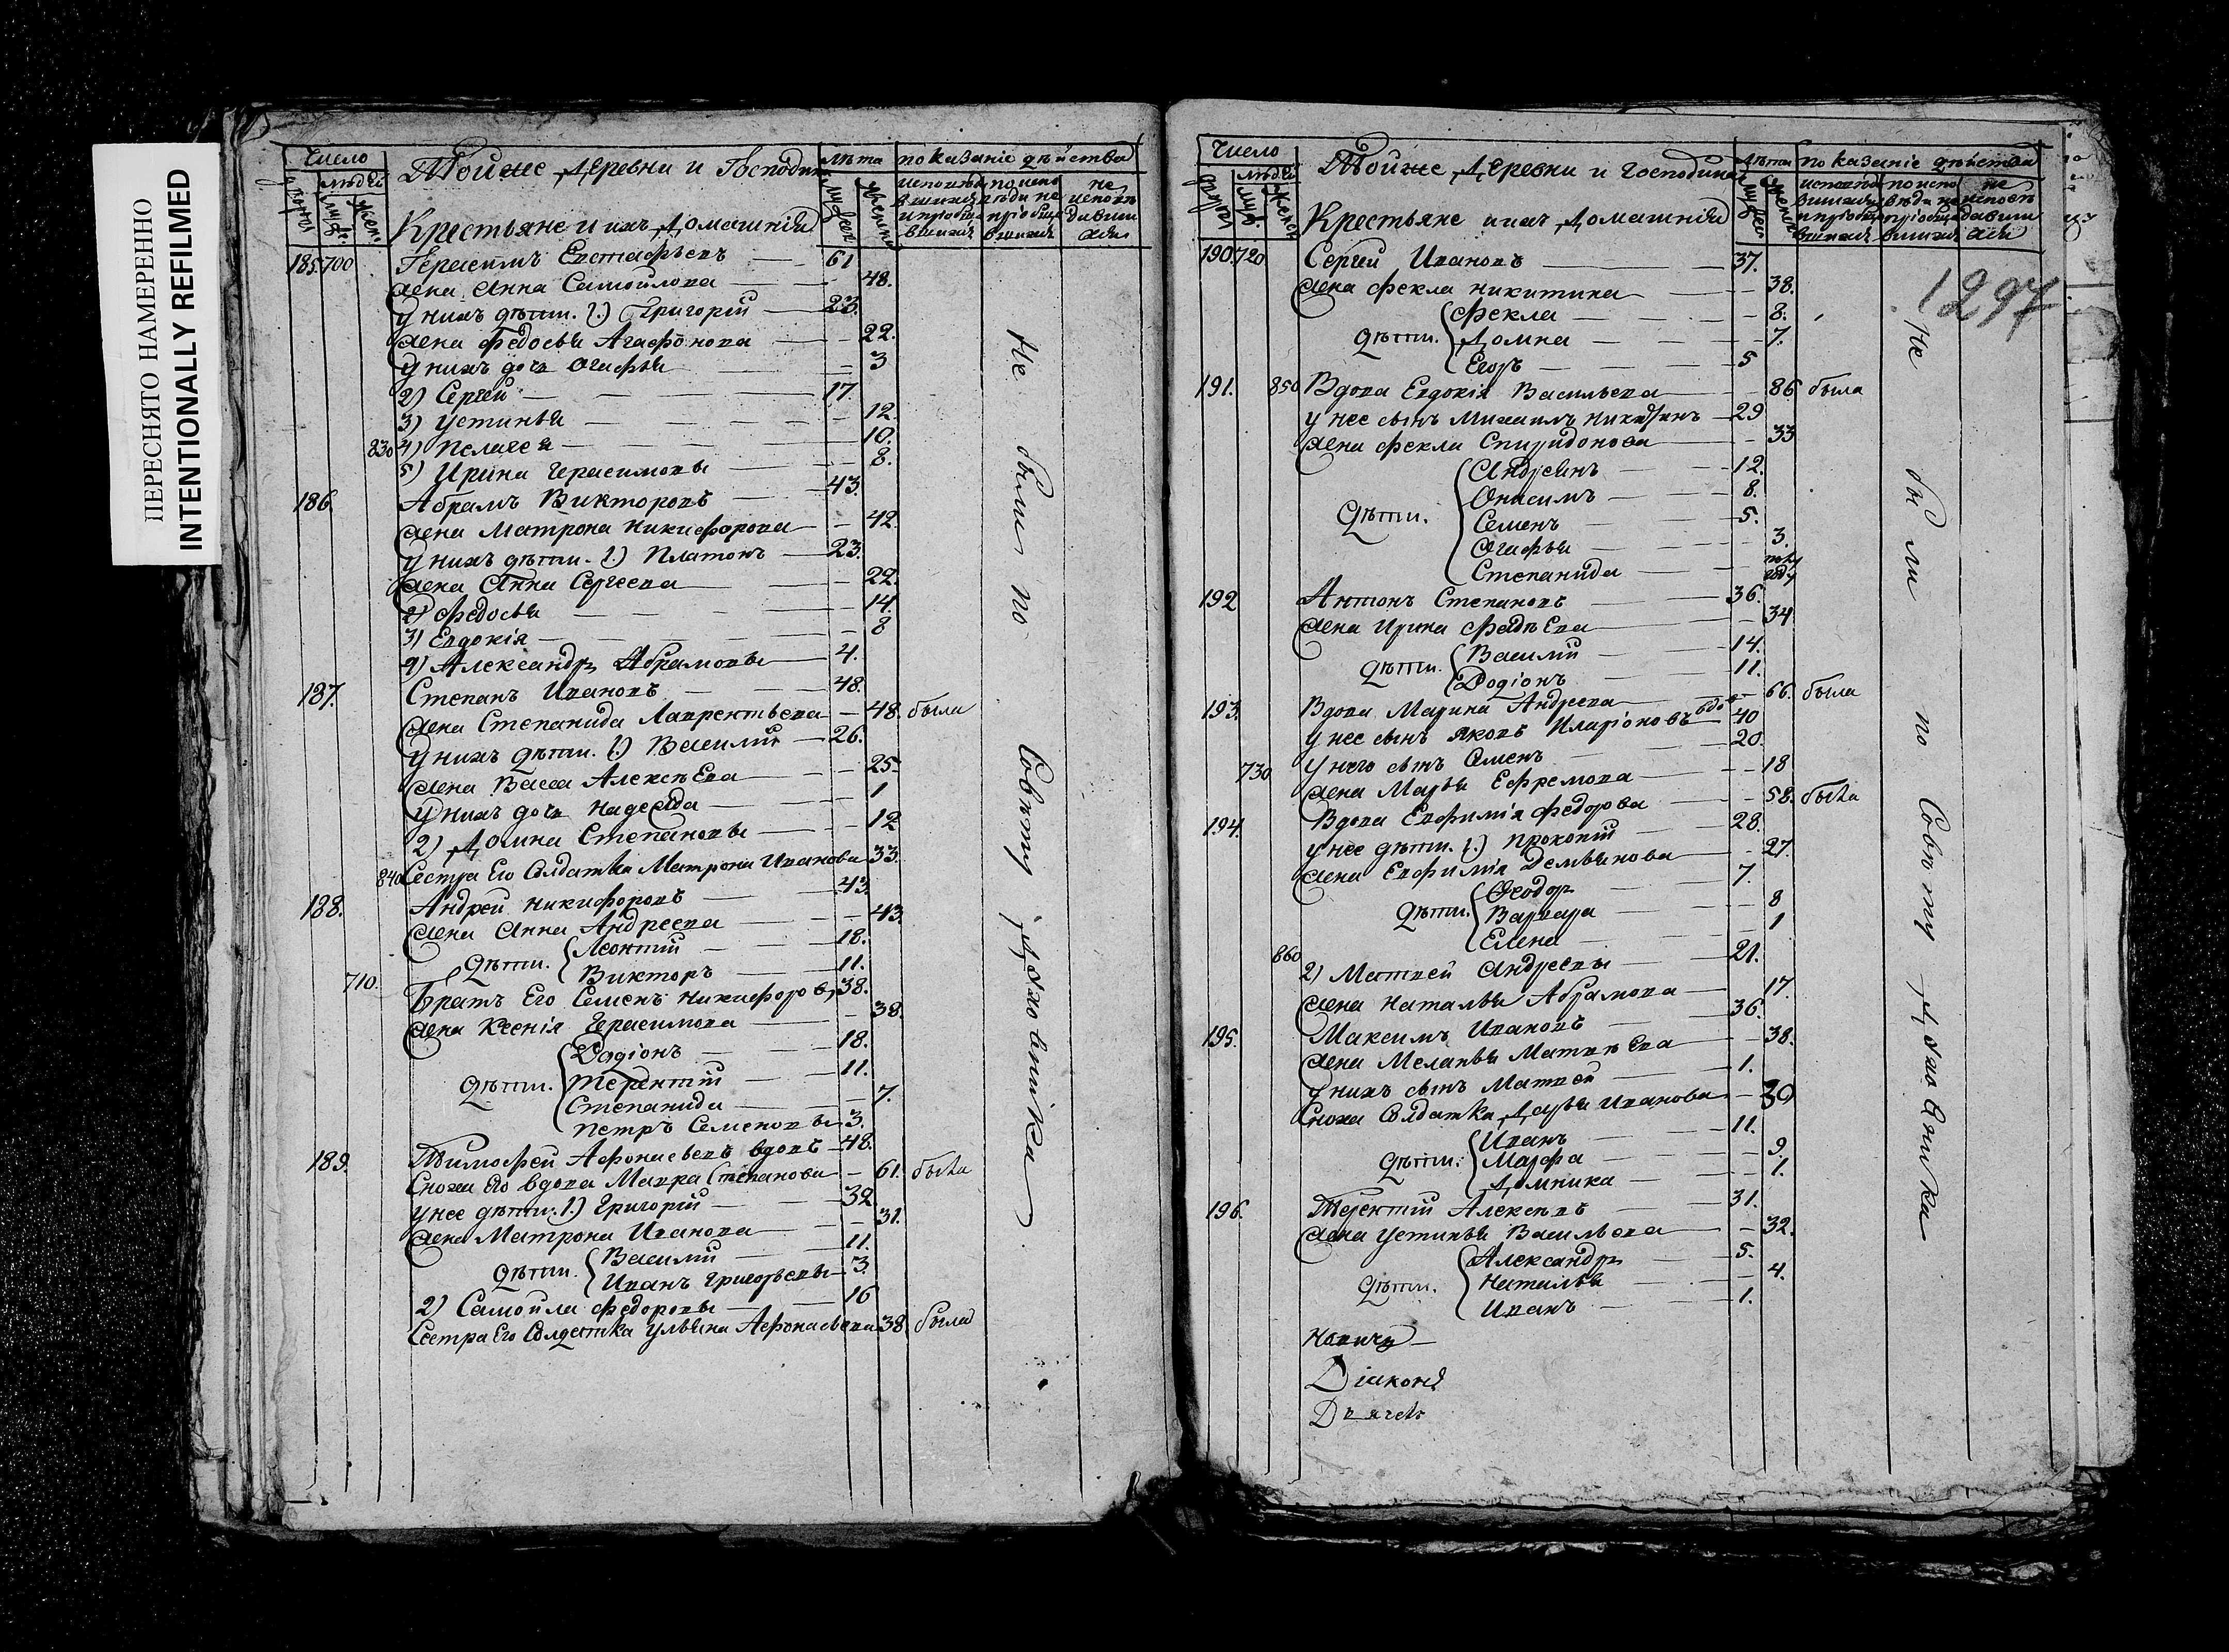 ПЕРЕСНЯТО НАМЕРЕННО
INTENTIONALLY REFILMED
Число
людей
Тойже Деревни и Господина
лѣта
показаніе дѣйства
Крестьяне и ихъ Домашнія
185. 700 Герасимъ Евстафьевъ 61
жена Анна Самойлова 48.
у нихъ дѣти. 1.) Григорій 23.
жена Федосья Агафонова 22.
у нихъ дочь Агафья 3
2) Сергей 17
3) Устинья 12.
830 4) Пелагея 10.
5) Ирина Герасимовы 8.
186. Абрамъ Викторовъ 43.
жена Матрона Никифорова 42.
у нихъ дѣти. 1.) Платонъ 23.
жена Анна Сергеева 22.
2) Федосья 14.
3) Евдокія 8
4) Александръ Абрамовы 4.
187. Степанъ Ивановъ 48.
жена Степанида Лаврентьева 48. была
у нихъ дѣти. 1.) Василій 26.
жена Васса Алексѣева 25.
у нихъ дочь Надежда 1
2) Домна Степановы 12
840 Сестра Его Солдатка Матрона Иванова 33.
188. Андрей Никифоровъ 43
жена Анна Андреева 43.
дѣти. Леонтій 18.
710. Викторъ 11.
Братъ Его Семенъ Никифоровъ 38.
жена Ксенія Герасимова 38.
Родіонъ 18.
дѣти. Терентій 11.
Степанида 7.
Петръ Семеновы 3.
189. Тимофей Афонасьевъ вдовъ 48.
Сноха Его вдова Мавра Степанова 61. была
у нее дѣти: 1.) Григорій 32
жена Матрона Иванова 31.
Василій 11.
дѣти. Иванъ Григорьевы 3.
2) Самойла Федоровы 16
Сестра Его Солдатка Ульяна Афонасьева 38 была
Не были по Совѣту Духовника
Число
людей
Тойже Деревни и Господина
лѣта
показаніе дѣйства
Крестьяне и ихъ Домашнія
1297
190. 720. Сергей Ивановъ 37.
жена Фекла Никитина 38.
Фекла 8.
дѣти. Домна 7.
Егоръ 5
191. 850 Вдова Евдокія Васильева 86 была
у нее сынъ Михаилъ 29
жена Фекла Спиридонова 33
Андреянъ 12.
Онисимъ 8.
дѣти. Семенъ 5.
Агафья 3.
Степанида
192 Антонъ Степановъ 36.
жена Ирина Фадѣева 34
дѣти. Василій 14.
Родіонъ 11.
193. Вдова Марина Андреева 66. была
у нее сынъ Яковъ Иларіоновъ вдовъ 40
у него сынъ Семенъ 20.
730 жена Марья Ефремова 18
194. Вдова Евфимія Федорова 58. была
у нее дѣти. 1.) Прокопій 28.
жена Евфимія Демьянова 27.
Феодоръ 7.
дѣти. Варвара 8
860 Елена 1
2) Матвей Андреевы 21.
жена Наталья Абрамова 17.
195. Максимъ Ивановъ 36.
жена Меланья Матвѣева 38.
у нихъ сынъ Матвей 1.
Сноха Солдатка Дарья Иванова 30
Иванъ 11.
дѣти. Марфа 9.
Домника 1.
196. Терентій Алексѣевъ 31.
жена Устинья Васильева 32.
Александръ 5.
дѣти. Наталья 4.
Иванъ 1.
Не были по Совѣту Духовника
Діаконъ
Дьячекъ